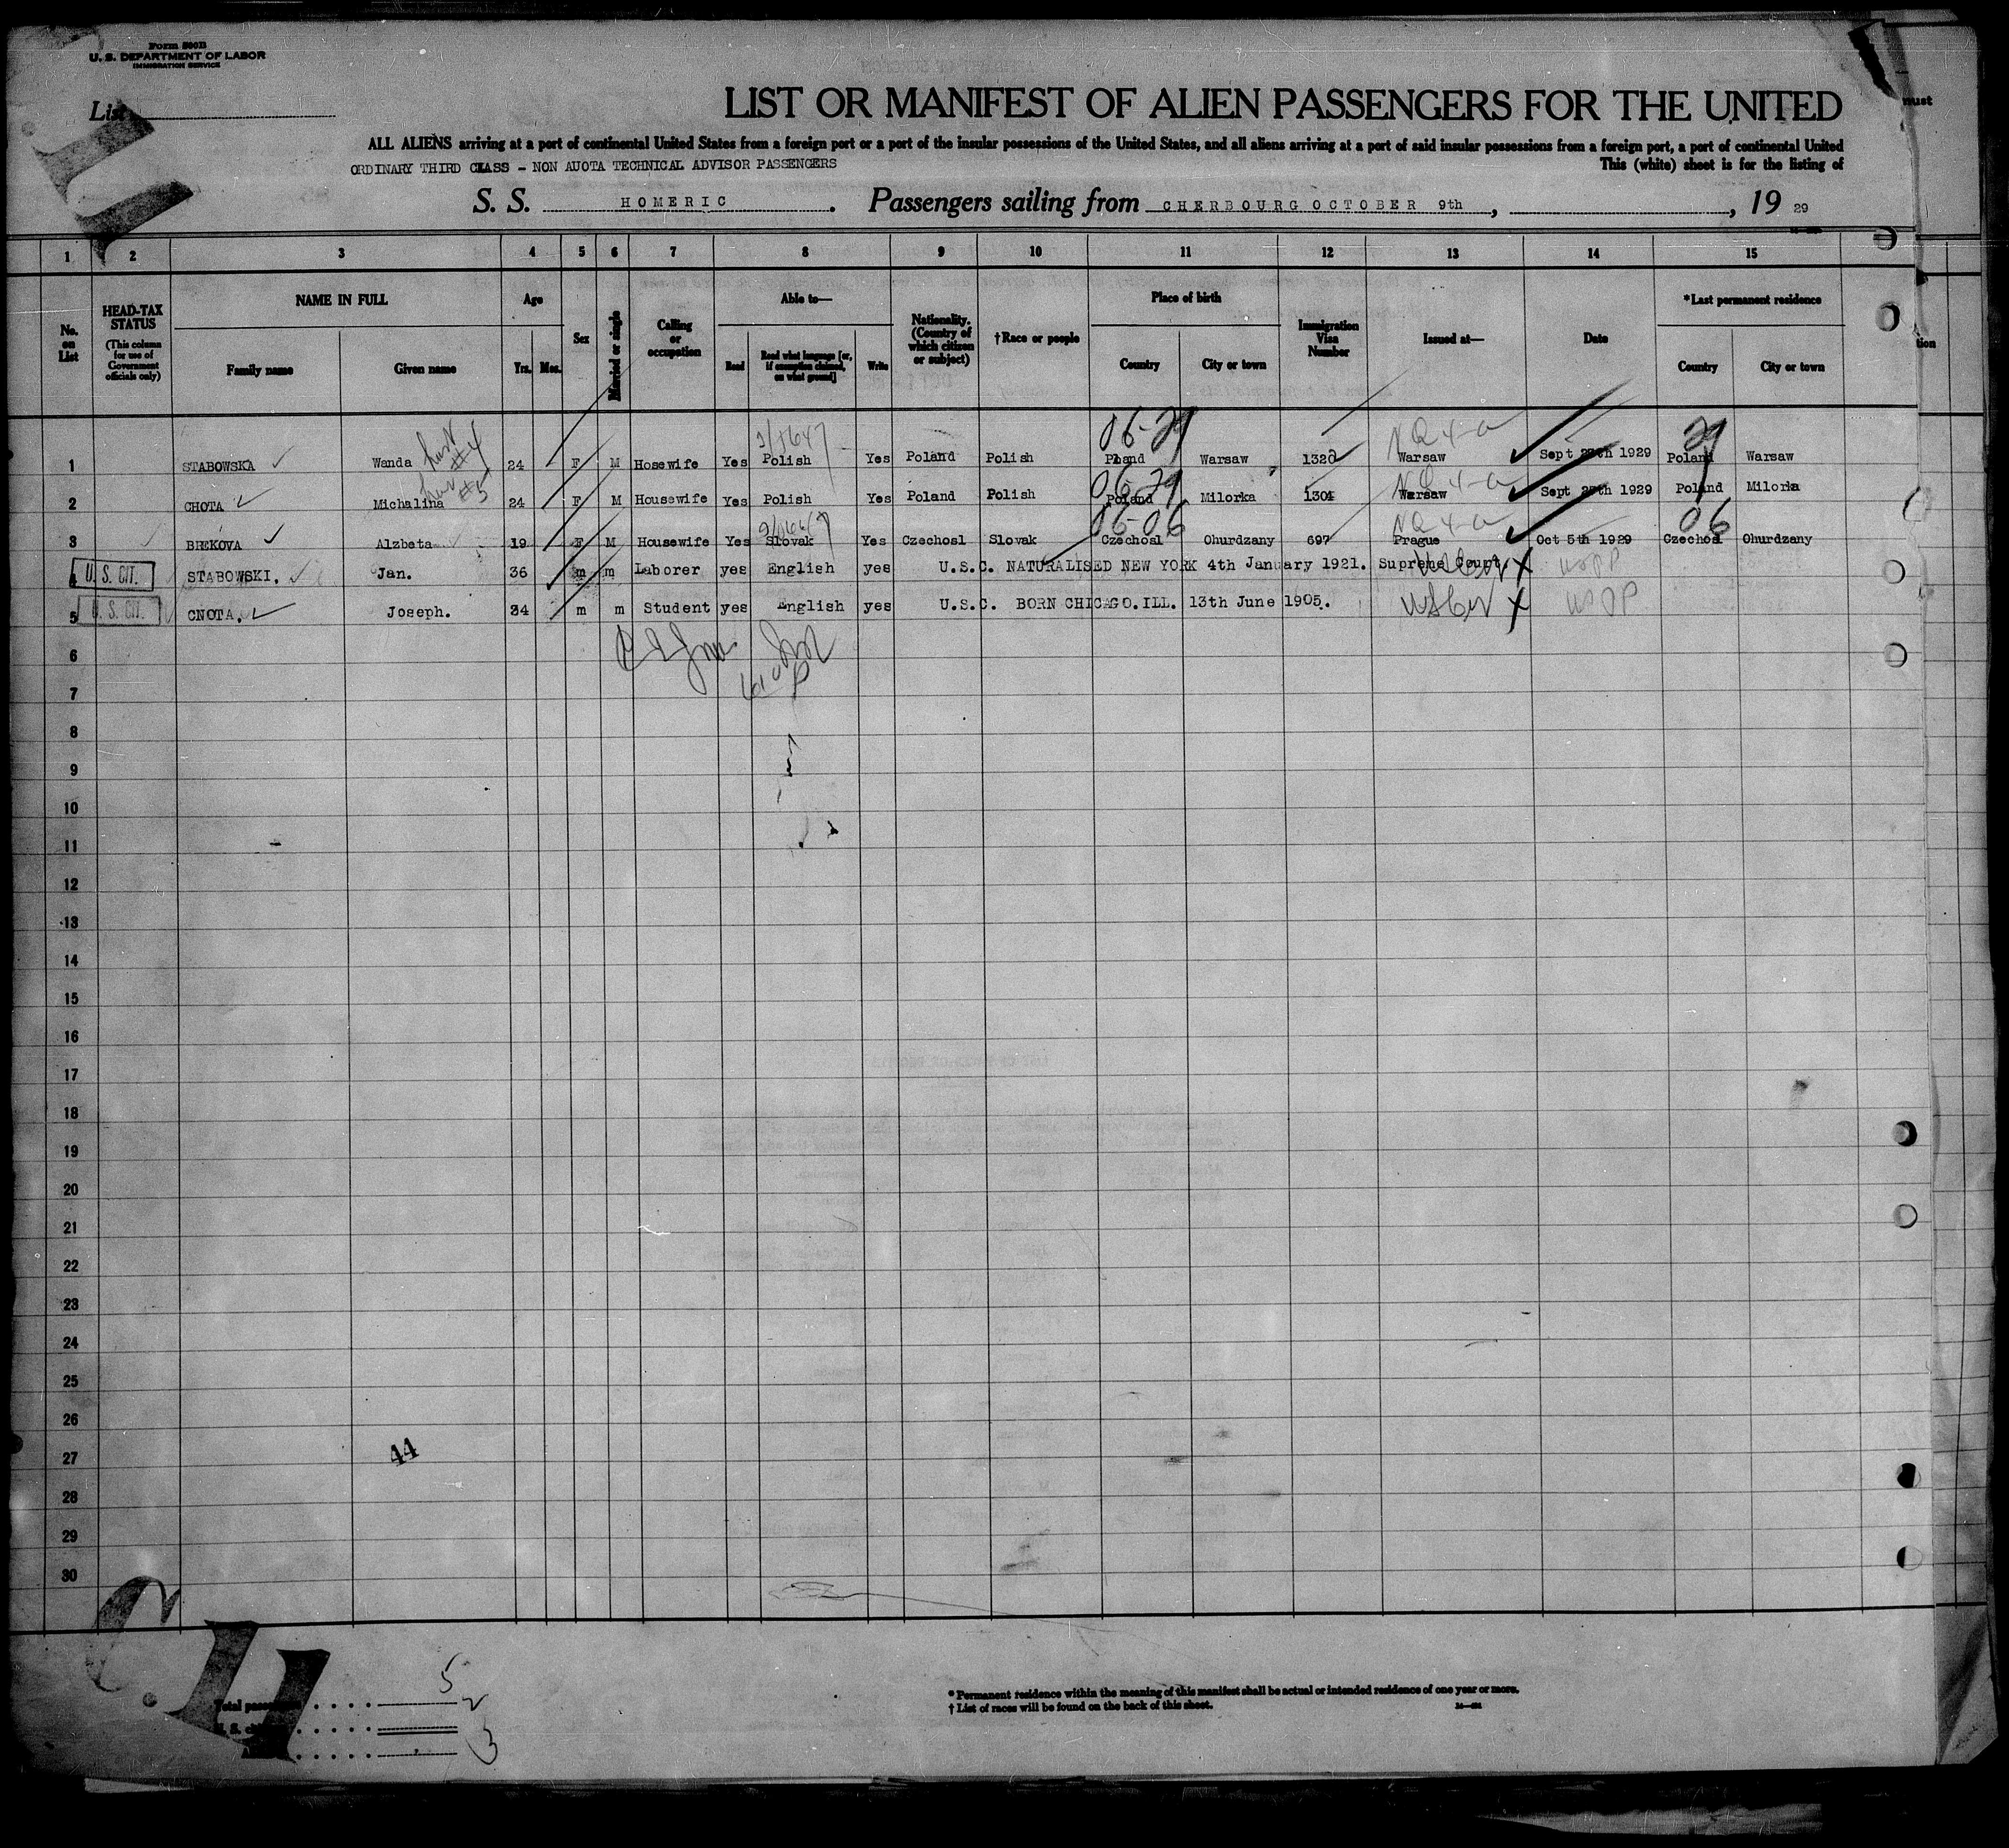 Form 500B
U. S. DEPARTMENT OF LABOR
IMMIGRATION SERVICE
List
LIST OR MANIFEST OF ALIEN PASSENGERS FOR THE UNITED
must
ALL ALIENS arriving at a port of continental United States from a foreign port or a port of the insular possessions of the United States, and all aliens arriving at a port of said insular possessions from a foreign port, a port of continental United
ORDINARY THIRD CLASS - NON AUOTA TECHNICAL ADVISOR PASSENGERS
This (white) sheet is for the listing of
S. S. HOMERIC. Passengers sailing from CHERBOURG OCTOBER 9th, , 19 29
1 2 3 4 5 6 7 8 9 10 11 12 13 14 15
No. on List
HEAD-TAX STATUS (This column for use of Government officials only)
NAME IN FULL Family name Given name
Age Yrs. Mos.
Sex
Married or single
Calling or occupation
Able to— Read Read what language [or, if exemption claimed, on what ground] Write
Nationality. (Country of which citizen or subject)
†Race or people
Place of birth Country City or town
Immigration Visa Number
Issued at—
Date
*Last permanent residence Country City or town
tion
06-29 NQ 4-a 29
1 STABOWSKA Wanda #4 24 F M Hosewife Yes Polish Yes Poland Polish Pland Warsaw 1320 Warsaw Sept th 1929 Poland Warsaw
06-29 NQ 4-a
2 CHOTA Michalina #5 24 F M Housewife Yes Polish Yes Poland Polish Poland Milorka 1304 Warsaw Sept 27th 1929 Poland Milorka
06-06 NQ 4-a 06
3 BREKOVA Alzbeta 19 F M Housewife Yes Slovak Yes Czechosl Slovak Czechosl Ohurdzany 697 Prague Oct 5th 1929 Czechosl Ohurdzany
4 U. S. CIT. STABOWSKI. Jan. 36 m m Laborer yes English yes U.S.C. NATURALISED NEW YORK 4th January 1921. Supreme Court. X USPP
5 U. S. CIT. CNOTA. Joseph. 34 m m Student yes English yes U.S.C. BORN CHICAGO.ILL. 13th June 1905. X USPP
6
7
8
9
10
11
12
13
14
15
16
17
18
19
20
21
22
23
24
25
26
27 44
28
29
30
Total 5
2
3
* Permanent residence within the meaning of this manifest shall be actual or intended residence of one year or more.
† List of races will be found on the back of this sheet.